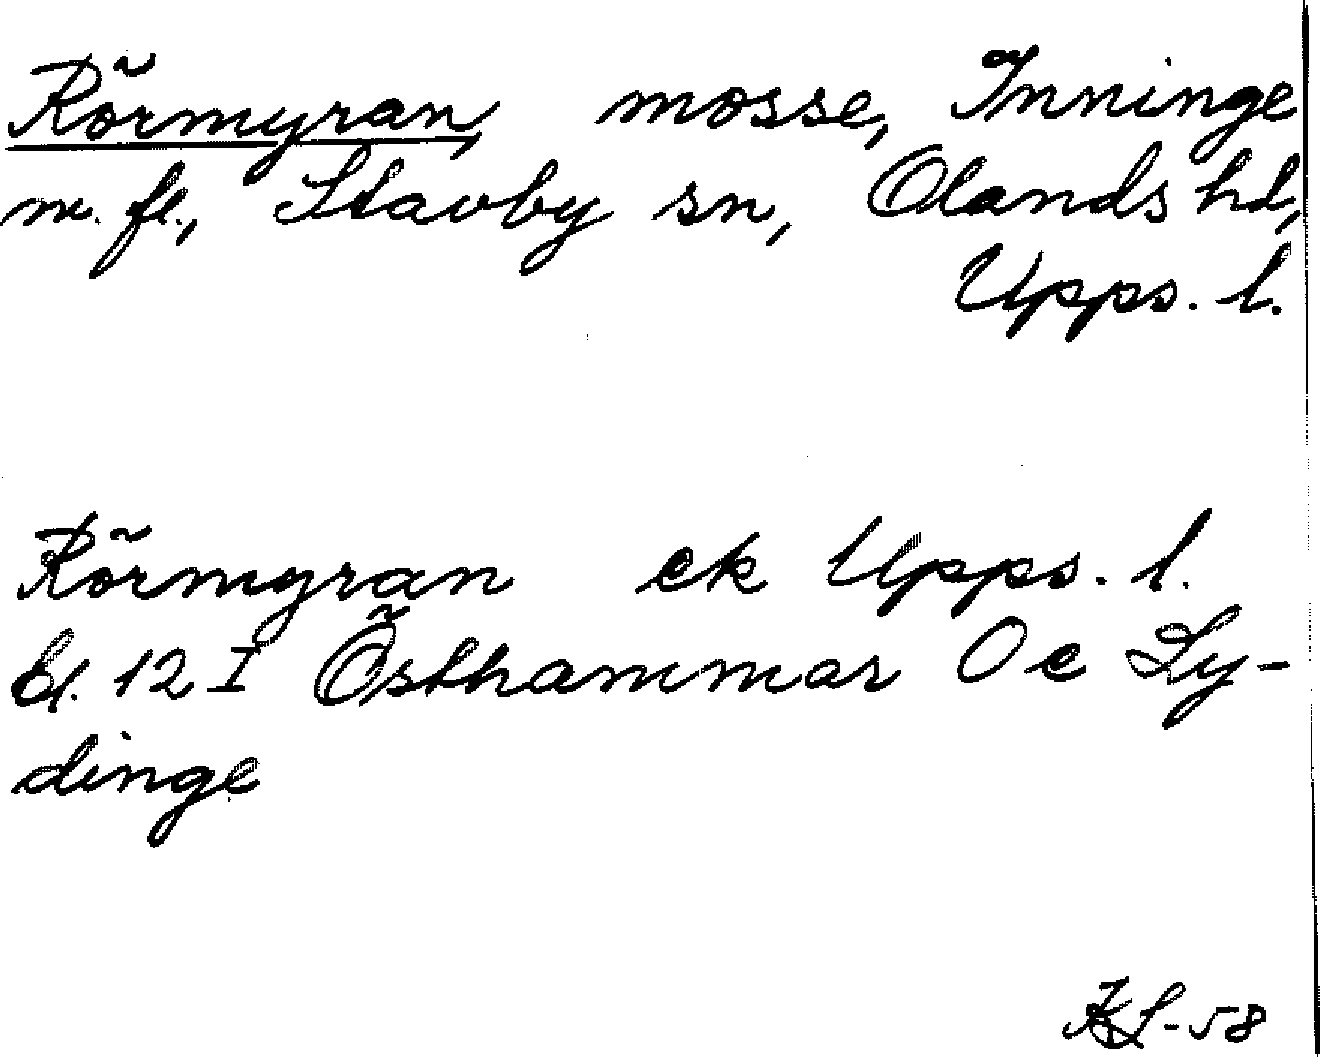 Rörmyran, mosse, Inninge
m. fl., Stavby sn, Olands hd,
Upps. l.
Rörmyran ek Upps. l.
Bl. 12 I Östhammar Oe Ly-
dinge
KL-58